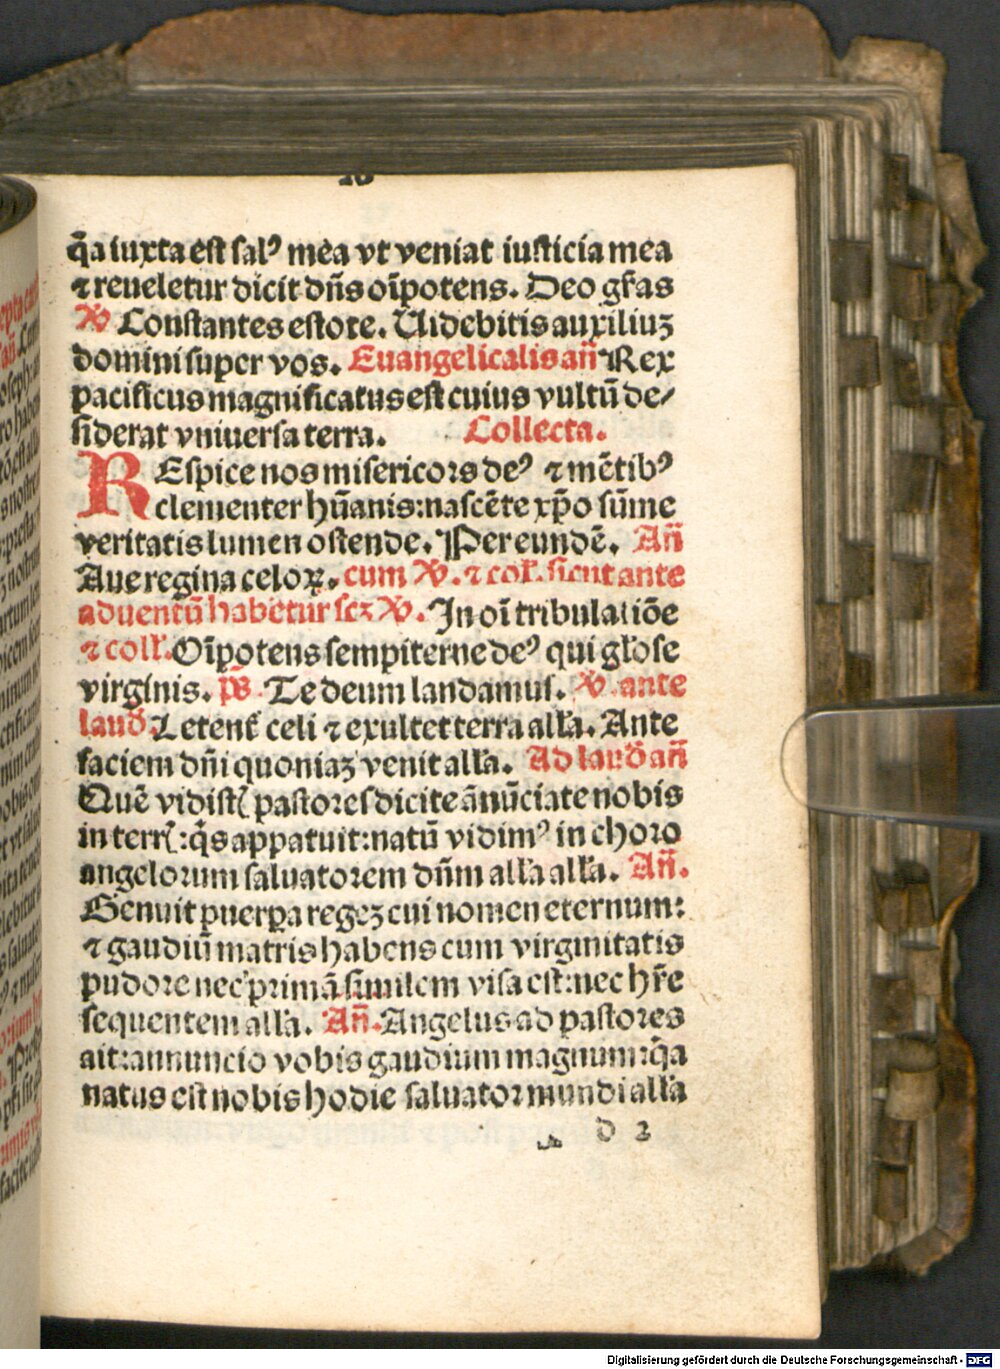 q̄a iuxta est salꝰ mea vt veniat iusticia mea
⁊ reueletur dicit dn̄s oīpotens. Deo gr̄as
℣ Constantes estote. Uidebitis auxiliuʒ
domini super vos. Euangelicalis an̄ Rex
pacificus magnificatus est cuius vultū de⸗
siderat vniuersa terra. Collecta.
REspice nos misericors deꝰ ⁊ mētibꝰ
clementer hūanis: nascēte xp̄o sūme
veritatis lumen ostende. Per eundē. An̄
Aue regina celoꝝ. cum ℣. ⁊ coll̄. sicut ante
aduentū habetur scꝫ ℣. In oī tribulatiōe
⁊ coll̄. Oīpotens sempiterne deꝰ qui gl̄ose
virginis. ps̄ Te deum laudamus. ℣. ante
laud̄ Letent̄ celi ⁊ exultet terra all̄a. Ante
faciem dn̄i quoniaʒ venit all̄a. Ad laud̄ an̄
Quē vidistꝭ pastores dicite ānūciate nobis
in terrꝭ: q̄s apparuit: natū vidimꝰ in choro
angelorum saluatorem dn̄m all̄a all̄a. An̄.
Genuit puerꝑa regeʒ cui nomen eternum:
⁊ gaudiū matris habens cum virginitatis
pudore nec primā similem visa est: nec hr̄e
sequentem all̄a. An̄. Angelus ad pastores
ait: annuncio vobis gaudium magnum: q̄a
natus est nobis hodie saluator mundi all̄a
d 2
Digitalisierung gefördert durch die Deutsche Forschungsgemeinschaft - DFG